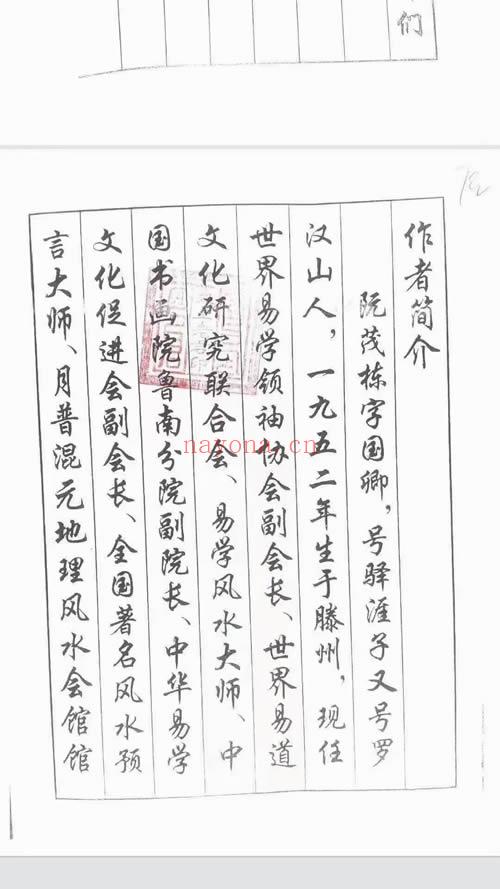 们
作者简介
阮茂栋字国卿，号驿涯子又号罗
汉山人，一九五二年生于滕州，现任
世界易学领袖协会副会长、世界易道
文化研究联合会、易学风水大师、中
国书画院鲁南分院副院长、中华易学
文化促进会副会长、全国著名风水预
言大师、月普混元地理风水会馆馆
nayona.cn